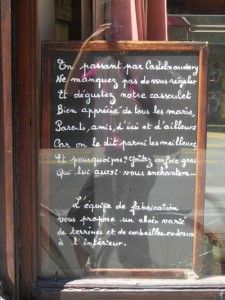 En passant par Castelnaudary
Ne manquez pas de vous régaler
Et dégustez notre cassoulet
Bien apprécié de tous les maris,
Parents, amis, d'ici et d'ailleurs
Car on le dit parmi les meilleurs
Et pourquoi pas! Goûtez au foie gras
Qui lui aussi vous enchantera...
L'équipe de fabrication
vous propose un choix varié
de terrines et de corbeilles cadeaux
à l'intérieur.